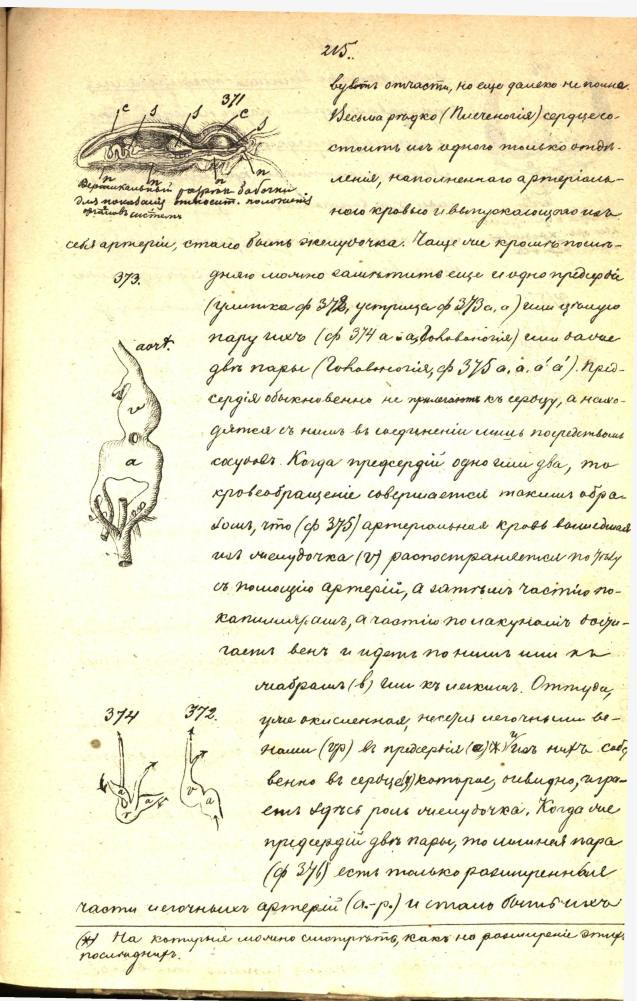 215.
371
c s s c s
n n n n
Вертикальный разрѣзъ бабочки
для показанія относит. положенія
органовъ системъ
вуетъ отчасти, но еще далеко не полна.
Весьма рѣдко (Плеченогія) сердце со-
стоитъ изъ одного только отдѣ-
ленія, наполненнаго артеріаль-
ною кровью и выпускающаго изъ
себя артеріи, стало быть желудочка. Чаще же кромѣ послѣ-
373.
дняго можно замѣтить еще и одно предсердіе
(улитка ф 372, устрица ф 373 а, а) или цѣлую
пару ихъ (ф 374 а и а, ) или даже
двѣ пары (Головоногія, ф 375 а. а. а' а'). Пред-
сердія обыкновенно не прилегаютъ къ сердцу, а нахо-
дятся съ нимъ въ соединеніи лишь посредствомъ
сосудовъ. Когда предсердій одно или два, то
кровеобращеніе совершается такимъ обра-
зомъ, что (ф 375) артеріальная кровь вышедшая
изъ желудочка (v) распостраняется по тѣлу
съ помощію артерій, а затѣмъ частію по-
капиллярамъ, а частію по лакунамъ дости-
гаетъ венъ и идетъ по нимъ или къ
жабрамъ (в) или къ легкимъ. Оттуда,
aort.
v
a
374 372.
уже окисленная, легочными ве-
нами (vp) въ предсердія (а)* и изъ нихъ собс
венно въ сердце (v) которое, очевидно, игра-
етъ здѣсь роль желудочка. Когда же
предсердій двѣ пары, то лишняя пара
(ф 376) есть только расширенныя
части легочныхъ артерій (а.-р.) и стало быть ихъ
(*) На которыя можно смотрѣть, какъ на расширеніе этихъ
послѣднихъ.